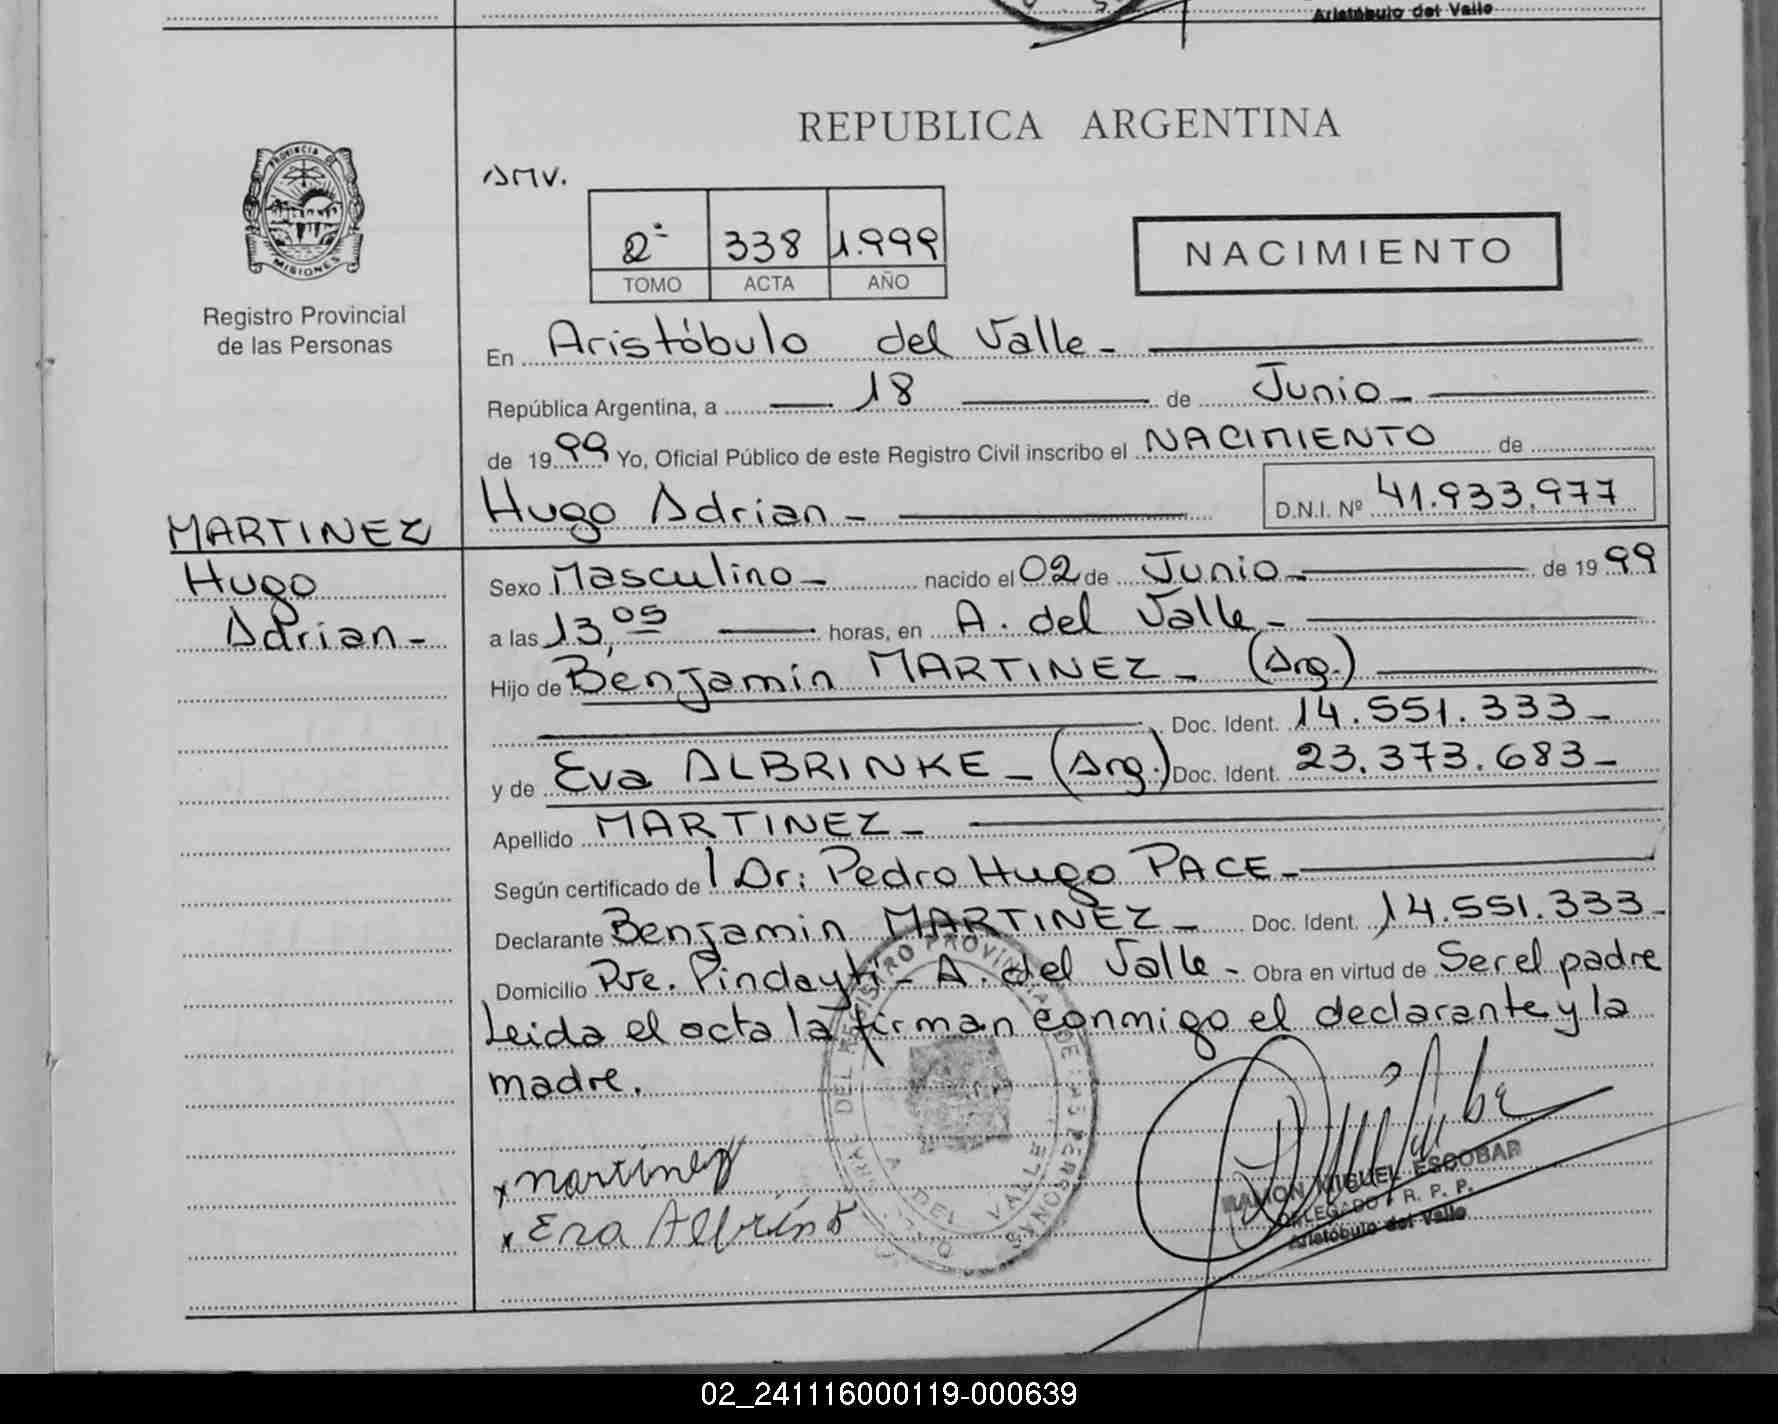 Aristóbulo del Valle
REPUBLICA ARGENTINA
PROVINCIA DE
MISIONES
Registro Provincial
de las Personas
SMV.
2º 338 1.999
TOMO ACTA AÑO
NACIMIENTO
En Aristóbulo del Valle -
República Argentina, a 18 de Junio -
de 1999 Yo, Oficial Público de este Registro Civil inscribo el NACIMIENTO de
Hugo Adrian - D.N.I. Nº 41.933.977
MARTINEZ
Hugo
Adrian -
Sexo Masculino - nacido el 02 de Junio - de 1999
a las 13,05 horas, en A. del Valle -
Hijo de Benjamin MARTINEZ - (Arg.)
Doc. Ident. 14.551.333 -
y de Eva ALBRINKE - (Arg.) Doc. Ident. 23.373.683 -
Apellido MARTINEZ -
Según certificado de / Dr: Pedro Hugo PACE -
Declarante Benjamin MARTINEZ - Doc. Ident. 14.551.333 -
Domicilio Pje. Pindaytí - A. del Valle - Obra en virtud de Ser el padre
Leida el acta la firman conmigo el declarante y la
madre.
x martinez
x Eva Albrink
RAMON MIGUEL ESCOBAR
DELEGADO R. P. P.
Aristóbulo del Valle
DEL REGISTRO PROVINCIAL DE LAS PERSONAS
A. DEL VALLE
02_241116000119-000639